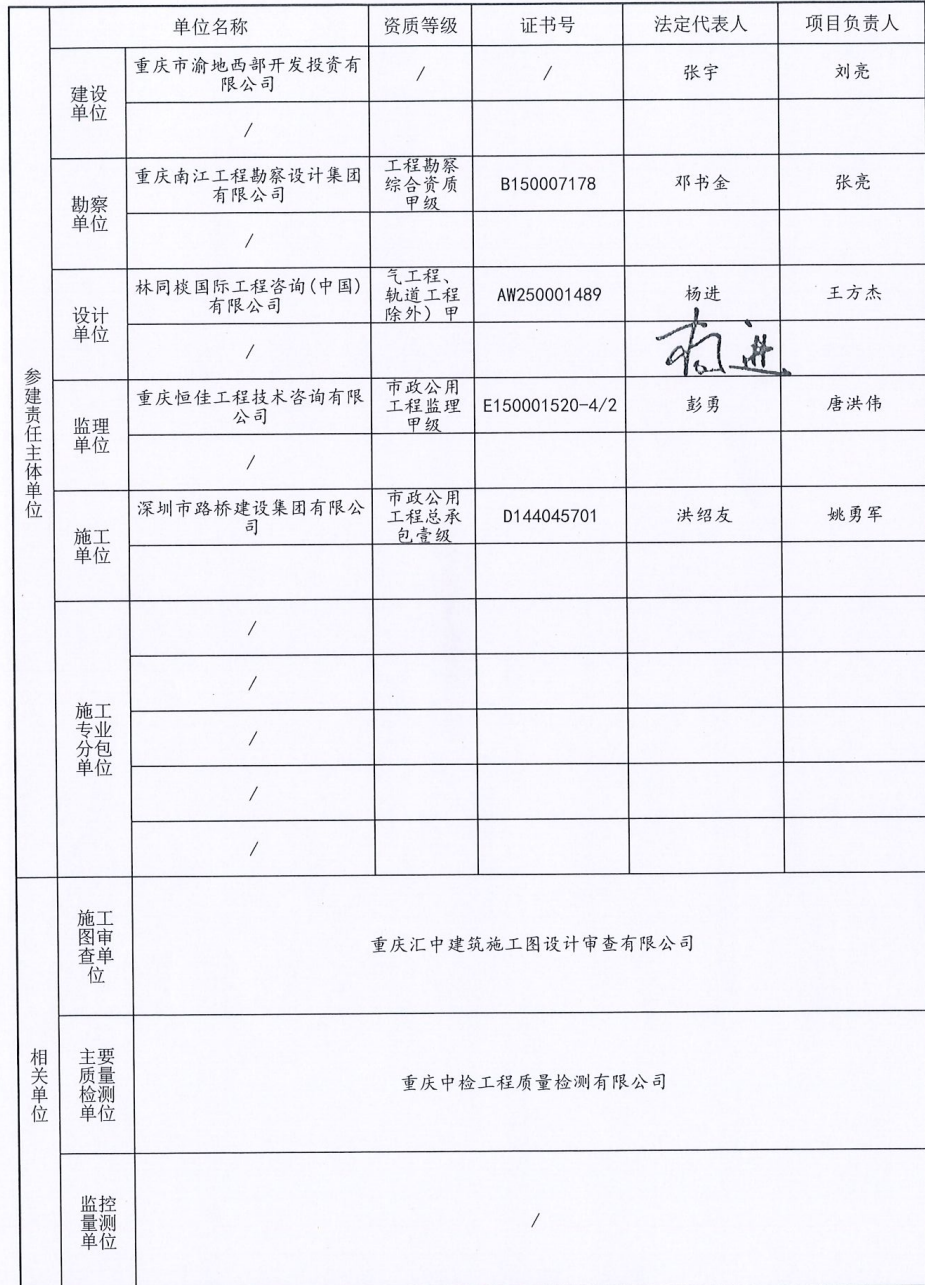 单位名称 资质等级 证书号 法定代表人 项目负责人
参建责任主体单位
建设
单位
重庆市渝地西部开发投资有
限公司
/ / 张宇 刘亮
/
勘察
单位
重庆南江工程勘察设计集团
有限公司
工程勘察
综合资质
甲级
B150007178 邓书金 张亮
/
设计
单位
林同棪国际工程咨询(中国)
有限公司
气工程、
轨道工程
除外）甲
AW250001489 杨进 王方杰
/
杨进
监理
单位
重庆恒佳工程技术咨询有限
公司
市政公用
工程监理
甲级
E150001520-4/2 彭勇 唐洪伟
/
施工
单位
深圳市路桥建设集团有限公
司
市政公用
工程总承
包壹级
D144045701 洪绍友 姚勇军
施工
专业
分包
单位
/
/
/
/
/
相关单位
施工
图审
查单
位
重庆汇中建筑施工图设计审查有限公司
主要
质量
检测
单位
重庆中检工程质量检测有限公司
监控
量测
单位
/